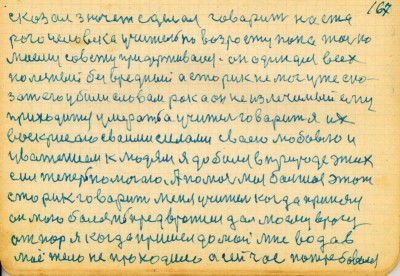 167
сказал значет сделал говарит на ста
рого человека учителю по возрасту пока только
моему совету придерживаес. он один для всех
полезный безвредный а старик не могу же ска-
зат его убили словам рака он не излечимый ему
приходит умерать а учител говарит я их
воскрисаю сваими силами сваею любовю и
уважением к людям я добилса в природе этих
сил теперь помогаю. А помоч мне баишса этот
старик говарит меня учител когда принял
он мого балезнь предвратил дал моему врагу
отпор я когда пришел домой мне вода в
моё тело не проходила а сейчас потребовал